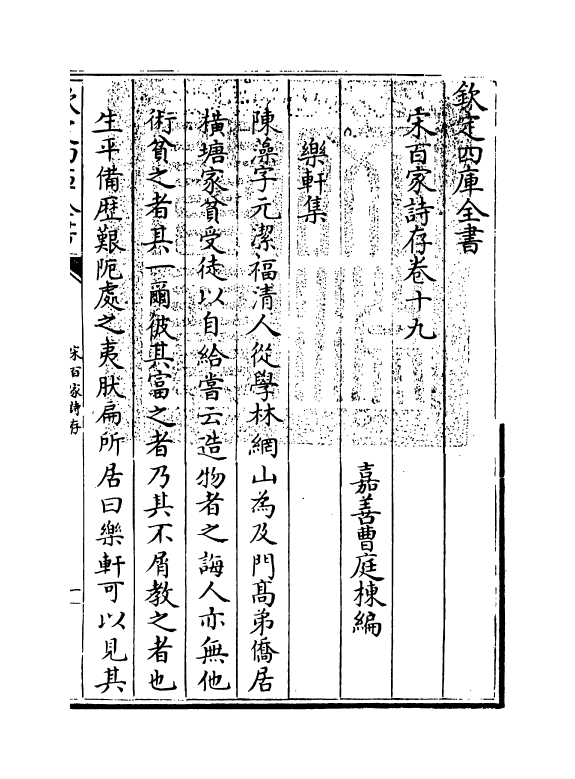 欽定四庫全書
宋百家詩存卷十九
嘉善曹庭棟編
樂軒集
陳藻字元潔福清人從學林網山為及門髙弟僑居
橫塘家貧受徒以自給嘗云造物者之誨人亦無他
術貧之者其一爾彼其富之者乃其不屑教之者也
生平備歴艱阨處之夷肰扁所居曰樂軒可以見其
宋百家詩存
一